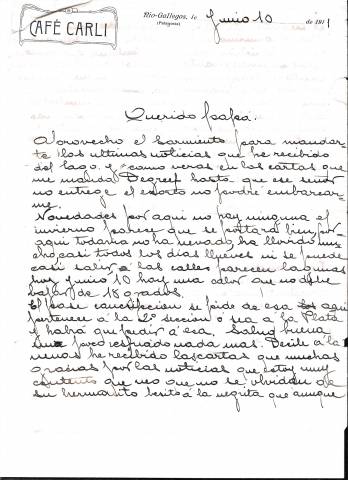 CAFÉ CARLI
Rio-Gallegos, le Junio 10 de 1911
(Patagonia)
Querido papá:
Aprovecho el Sarmiento para mandar-
te las ultimas noticias que he recibido
del lago, y como veras en las cartas que
me manda Degreef hasta que ese señor
no entrege el no podré embarcar-
me.
Novedades por aqui no hay ninguna el
invierno parece que se portará bien, por
aqui todavia no ha nevado, ha llovido mu-
cho, casi todos los dias llueve, ni se puede
casi salir á las calles parecen lagunas
hoy junio 10 hay una calor que no debe
bajar de 18 grados.
El pase se pide de esa los aqui
pertenece á la 2ª sección o sea a la Plata
y habrá que pedir á esa. Salud buena
un poco resfriado nada mas. Decile á la
nenas he recibido las cartas que muchas
gracias por las noticias que estoy muy
contento que veo que no se olvidan de
su hermanito escribi á la negrita que aunque